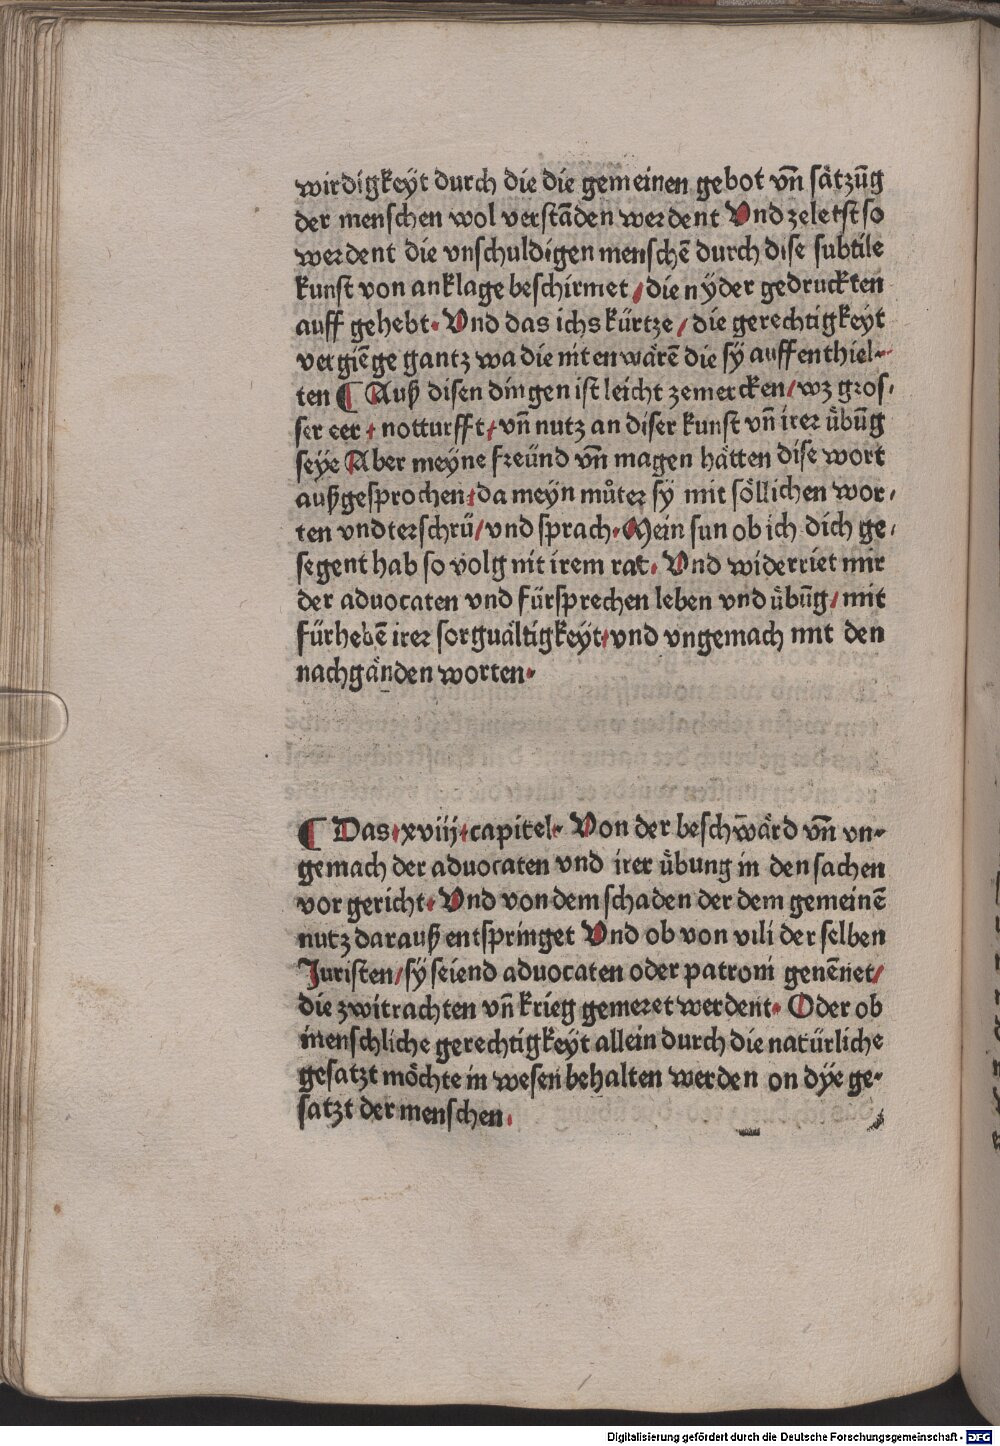 wirdigkeyt durch die die gemeinen gebot vn̄ sätzūg
der menschen wol verstāden werdent Vnd zeletst so
werdent die vnschuldigen menschē durch dise subtile
kunst von anklage beschirmet / die nyder gedruckten
auff gehebt· Vnd das ichs kürtze / die gerechtigkeyt
vergiēge gantz wa die nit enwärē die sy auffenthiel⸗
ten ¶ Auß disen dingen ist leicht zemercken / wz gros⸗
ser eer / notturfft / vn̄ nutz an diser kunst vn̄ irer übūg
seye Aber meyne freünd vn̄ magen hätten dise wort
außgesprochen / da meyn můter sy mit söllichen wor⸗
ten vndterschrü / vnd sprach· Mein sun ob ich dich ge⸗
segent hab so volg nit irem rat· Vnd widerriet mir
der aduocaten vnd fürsprechen leben vnd übūg / mit
fürhebē irer sorguältigkeyt / vnd vngemach mit den
nachgänden worten·
¶ Das·xviij·capitel· Von der beschwärd vn̄ vn⸗
gemach der aduocaten vnd irer übung in den sachen
vor gericht· Vnd von dem schaden der dem gemeinē
nutz darauß entspringet Vnd ob von vili der selben
Juristen / sy seiend aduocaten oder patroni genēnet /
die zwitrachten vn̄ krieg gemeret werdent· Oder ob
menschliche gerechtigkeyt allein durch die natürliche
gesatzt möchte in wesen behalten werden on dye ge⸗
satzt der menschen·
Digitalisierung gefördert durch die Deutsche Forschungsgemeinschaft - DFG